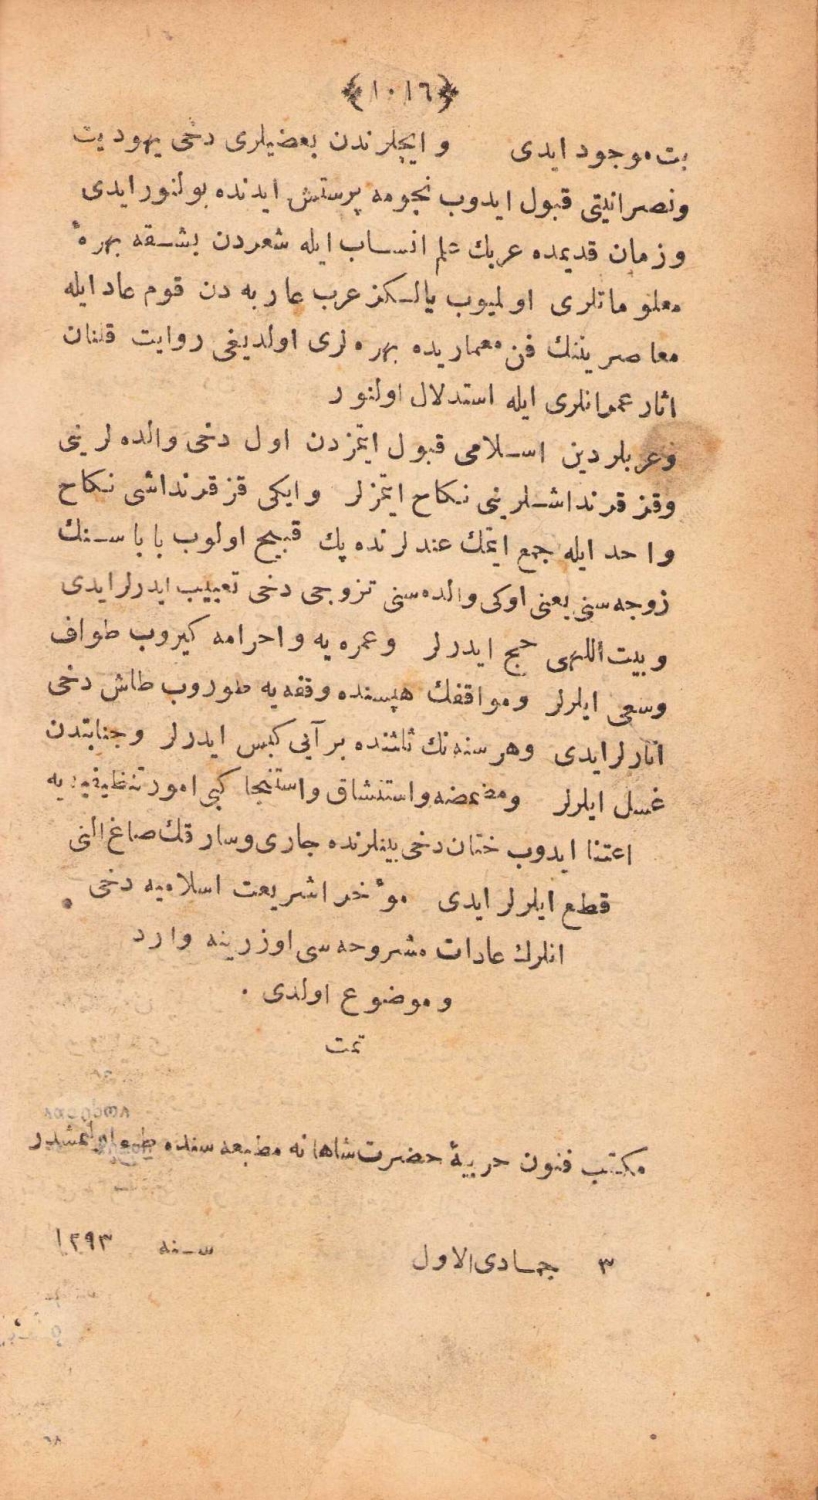 ﴿١٠١٦﴾
بت موجود ایدی و ایچلرندن بعضیلری دخی یهودیت
ونصرانیتی قبول ایدوب نجومه پرستش ایدنده بولنور ایدی
وزمان قدیمده عربك علم انساب ایله شعردن بشقه بهرهٔ
معلوماتلری اولمیوب یالـكز عرب عاربه دن قوم عاد ایله
معاصرینتك فن معماریده بهره لری اولدیغی روایت قلنان
اثار عمرانلری ایله استدلال اولنور
وعربلر دین اسلامی قبول ایتمزدن اول دخی والده لرینی
وقز قرنداشلرینی نكاح ایتمزلر وایكی قز قرنداشی نكاح
واحد ایله جمع ایتمك عندلرنده پك قبیح اولوب باباسـنك
زوجه سنی یعنی اوكی والده سنی تزوجی دخی تعییب ایدرلر ایدی
وبیت اللهی حج ایدرلر وعمره یه واحرامه كیروب طواف
وسعی ایلرلر ومواقفك هپسنده وقفه یه طوروب طاش دخی
اتارلر ایدی وهر سنه نك ثالثنده بر آیی كبس ایدرلر وجنابتدن
غسل ایلرلر ومضمضه واستنشاق واستنجا كبی امور تنظیفیه یه
اعتنا ایدوب ختان دخی بینلرنده جاری وسارقك صاغ النی
قطع ایلرلر ایدی مؤخرا شریعت اسلامیه دخی
انلرك عادات مشروحه سی اوزرینه وارد
وموضوع اولدی ٠
تمت
مكتب فنون حربیهٔ حضرت شاهانه مطبعه سنده طبع اولنمشدر
٣ جمـادی الاول سـنه ١٢٩٣